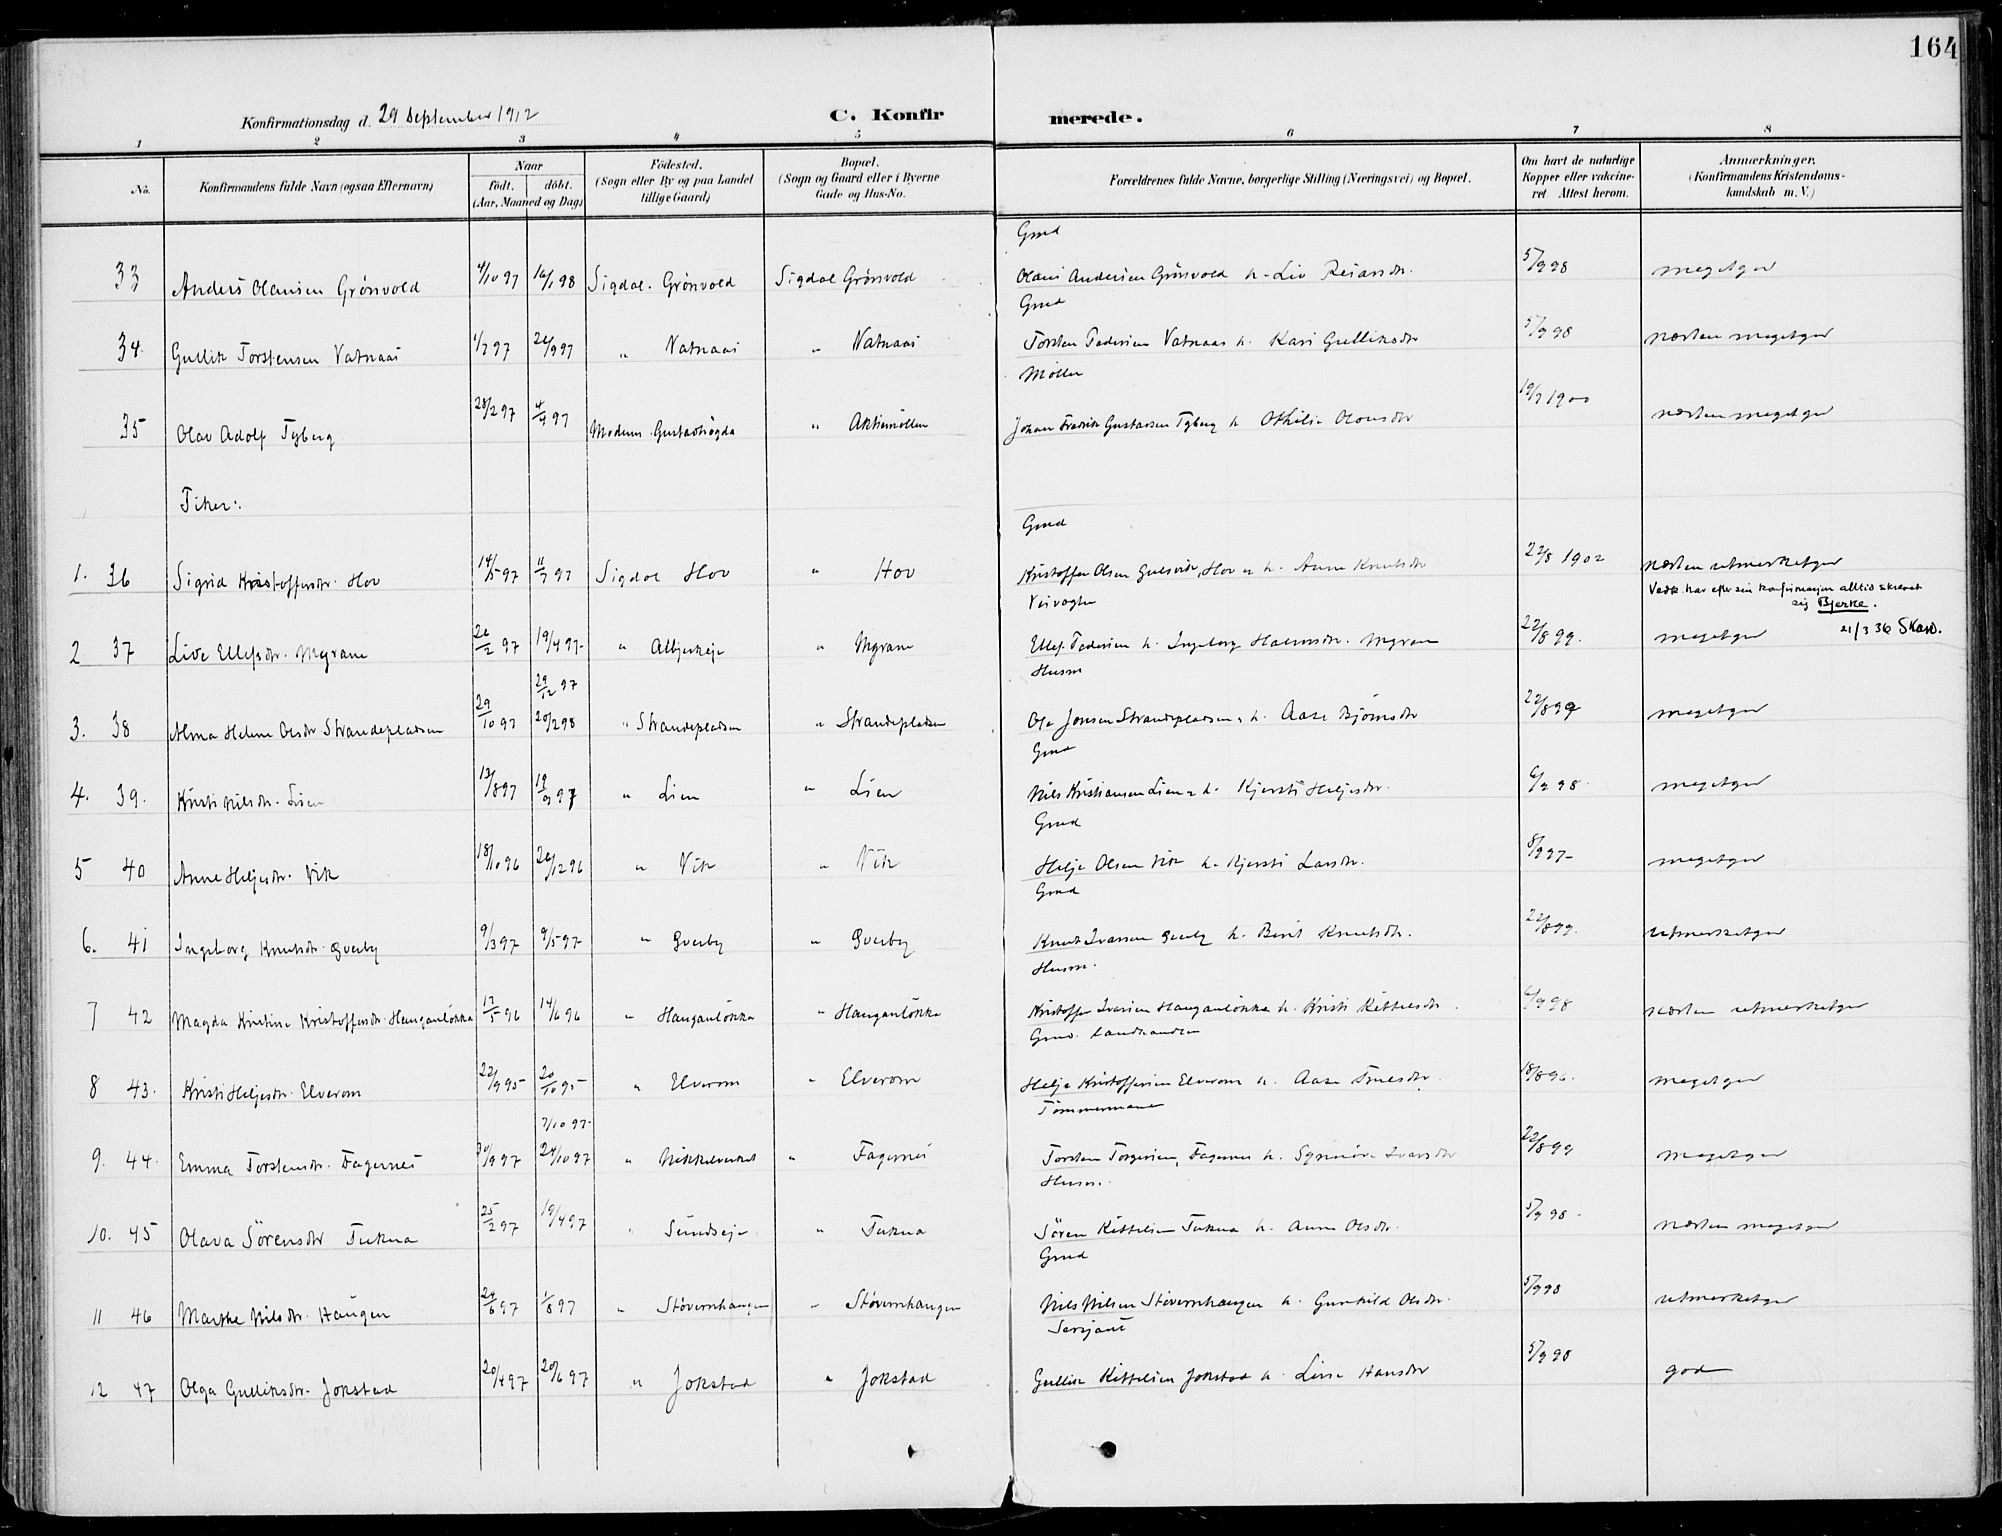 164
Konfirmationsdag d. 29 September 1912
C. Konfirmerede.
1 2 3 4 5 6 7 8
No. Konfirmandens fulde Navn (ogsaa Efternavn) Naar födt. döbt. (Aar, Maaned og Dag) Födested. (Sogn eller By og paa Landet tillige Gaard) Bopæl. (Sogn og Gaard eller i Byerne Gade og Hus-No. Forældrenes fulde Navne, borgerlige Stilling (Næringsvei) og Bopæl. Om havt de naturlige Kopper eller vakcineret. Attest herom. Anmærkninger. (Konfirmandens Kristendomskundskab m. V.)
Gmd
33 Anders Olausen Grönvold 4/10 97 16/1 98 Sigdal. Grönvold Sigdal Grönvold Olaus Andersen Grönvold h. Liv 5/9 98 megetgod
Gmd
34. Gullik Torstensen Vatnaas 1/7 97 26/9 97 " Vatnaas " Vatnaas Torsten Pedersen Vatnaas h. Kari Gulliksdtr 5/9 98 næsten megetgod
Möller
35 Olav Adolf Tyberg 28/2 97 4/4 97 Modum Gustavhögda " Aktiemöllen Johan Fredrik Gustavsen Tyberg h. Othilie Olausdtr 19/7 1900 næsten megetgod
Piker:
Gmd
1. 36 Sigrid Kristoffersdtr. Hov 14/5 97 11/7 97 Sigdal Hov " Hov Kristoffer Olsen Hov h. Anne Knutsdtr 22/8 1902 næsten utmerketgod
Vedk. har efter sin konfirmasjon alltid skrevet sig Bjerke. 21/3 36 Skard.
Veivogter
2 37 Live Ellefsdtr. Myrane 26/2 97 19/4 97 " Albjerkeje " Myrane Ellef Pedersen h. Ingeborg Halvorsdtr. Myrane 22/8 99. megetgod
Husm
29/12 97
3. 38 Alma Helene Olsdtr Strandepladsen 29/10 97 20/2 98 " Strandepladsen " Strandepladsen Ole Jonsen Strandepladsen h. Aase Björnsdtr 22/8 99 megetgod
Gmd
4. 39. Kristi Nilsdtr. Lien 13/8 97 19/9 97 " Lien " Lien Nils Kristiansen Lien h. Kjersti Heljesdtr. 6/9 98. megetgod
Gmd
5 40 Anne Heljesdtr. Vik 18/10 96 26/12 96 " Vik " Vik Helje Olsen Vik h. Kjersti Larsdtr. 8/9 97 megetgod
Gmd
6. 41 Ingeborg Knutsdtr. Gverby 9/3 97 9/5 97 " Gverby " Gverby Knut Ivarsen Gverby h. Berit Knutsdtr. 22/8 99. utmerketgod
Husm.
7 42 Magda Kristine Kristoffersdtr. Hauganlökka 17/5 96 14/6 96 " Hauganlökka " Hauganlökka Kristoffer Iversen Hauganlökka h. Kristi Kittelsdtr 6/9 98 næsten utmerketgod
Gmd. Landhandler
8 43. Kristi Heljesdtr. Elverom 22/9 95 20/10 95 " Elverom " Elverom Helje Kristoffersen Elverom h. Aase Truesdtr. 18/8 96. megetgod
Tömmermand
7/10 97
9. 44. Emma Torstensdtr. Fagernes 30/9 97 24/10 97 " Nikkelverket " Fagernes Torsten Torgersen, Fagernes h. Synnöve Ivarsdtr 22/8 99 megetgod
Husm.
10. 45 Olava Sörensdtr Tukua 25/2 97 19/4 97 " Sundseje " Tukua Sören Kittelsen Tukua h. Anne Olsdtr. 5/9 98 næsten megetgod
Gmd
11 46 Marthe Nilsdtr. Haugen 24/6 97 1/8 97 " Stövernhaugen " Stövernhaugen Nils Nilsen Stövernhaugen h. Gunhild Olsdtr. 5/9 98 utmerketgod
Sersjant
12 47 Olga Gulliksdtr. Jokstad 20/4 97 20/6 97 " Jokstad " Jokstad Gullik Kittelsen Jokstad h. Lina Hansdtr 5/9 98 god